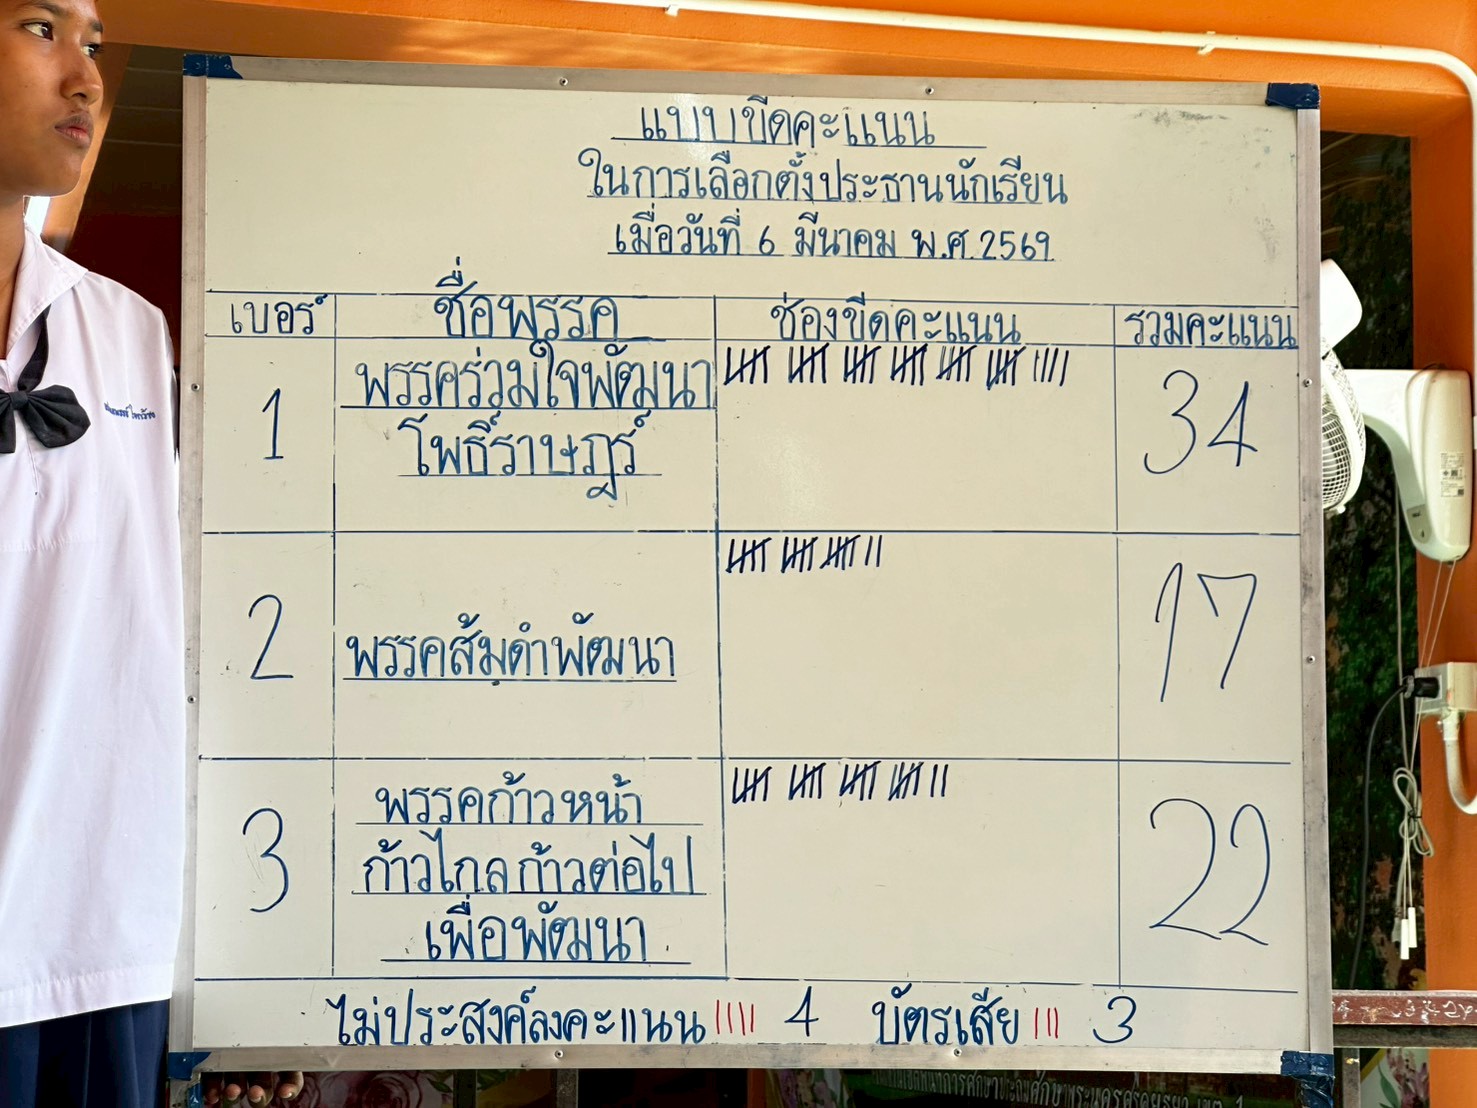 แบบขีดคะแนน
ในการเลือกตั้งประธานนักเรียน
เมื่อวันที่ 6 มีนาคม พ.ศ. 2569
เบอร์ ชื่อพรรค ช่องขีดคะแนน รวมคะแนน
1 พรรคร่วมใจพัฒนา 34
โพธิ์ราษฎร์
2 พรรคส้มตำพัฒนา 17
3 พรรคก้าวหน้า 22
ก้าวไกลก้าวต่อไป
เพื่อพัฒนา
ไม่ประสงค์ลงคะแนน 4 บัตรเสีย 3